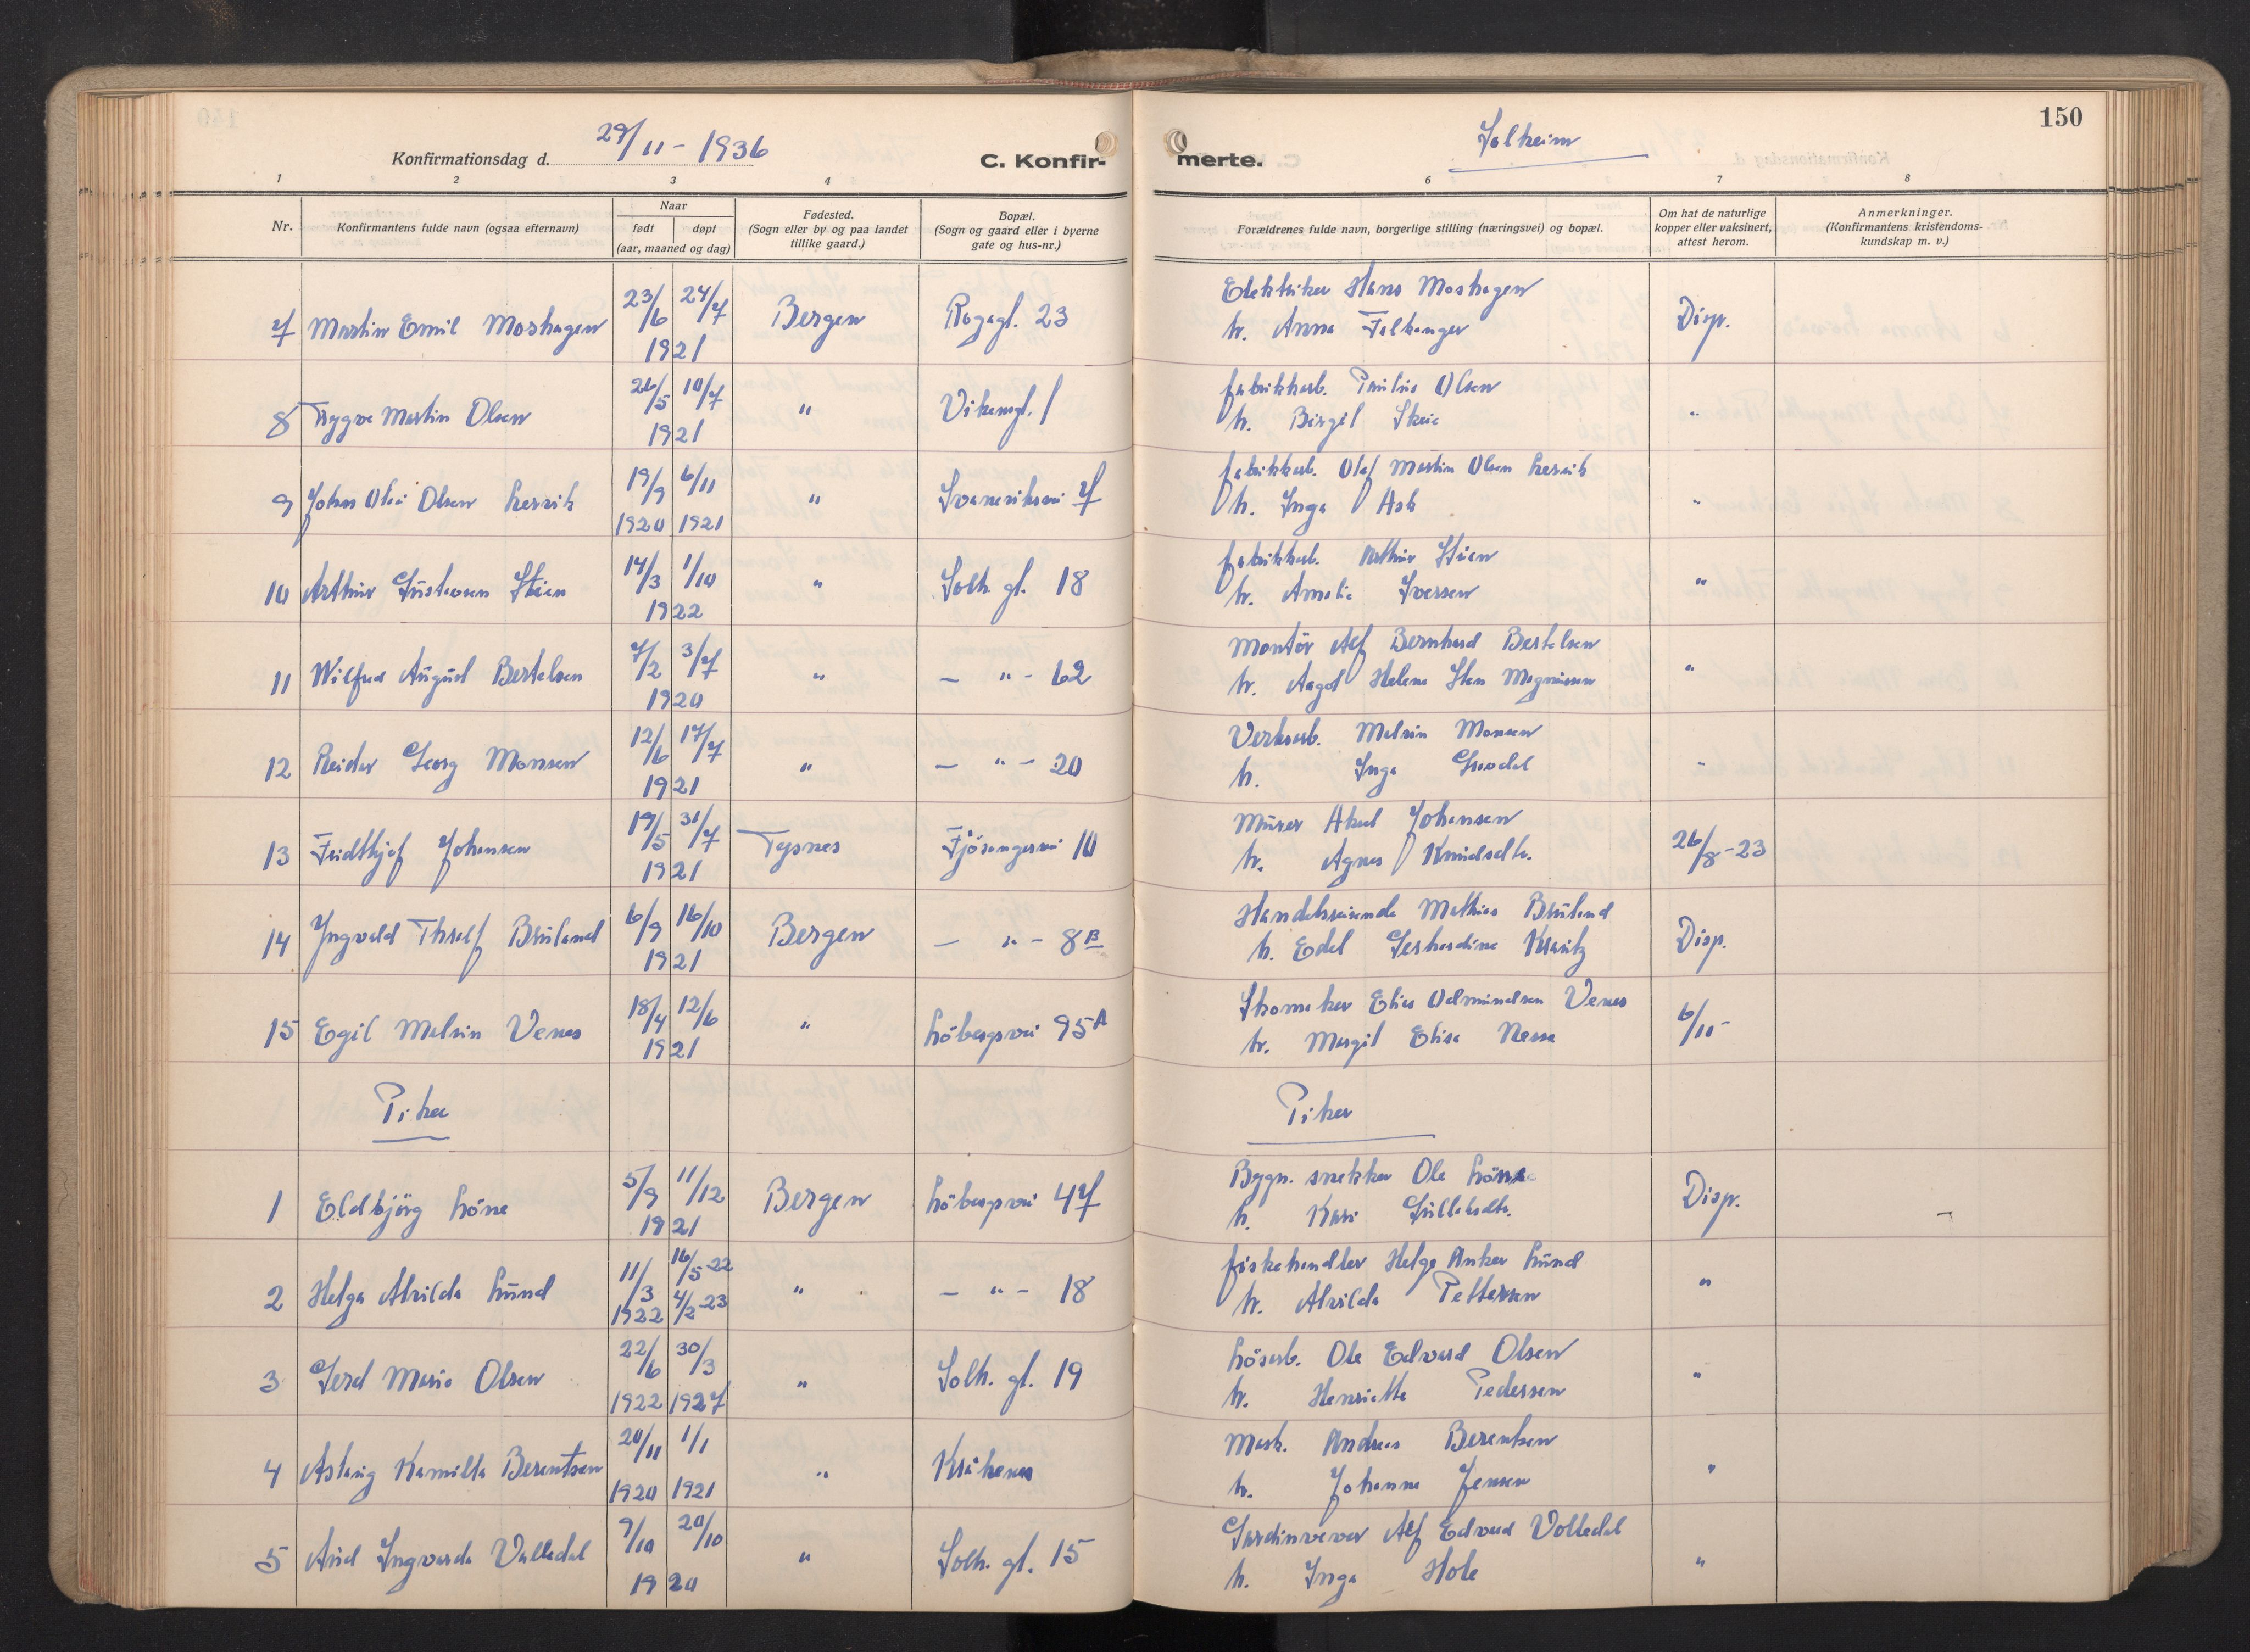 150
Konfirmationsdag d. 29/11 - 1936
C. Konfir-
merte.
Solheim
1 2 3 4 6 7 8
Nr.
Konfirmantens fulde navn (ogsaa efternavn)
Naar
født døpt
(aar, maaned og dag)
Fødested.
(Sogn eller by og paa landet
tillike gaard.)
Bopæl.
(Sogn og gaard eller i byerne
gate og hus-nr.)
Forældrenes fulde navn, borgerlige stilling (næringsvei) og bopæl.
Om hat de naturlige
kopper eller vaksinert,
attest herom.
Anmerkninger.
(Konfirmantens kristendoms-
kundskap m. v.)
7 Martin Emil Moshagen 23/6 24/7 1921 Bergen 23
Elektriker Hans Moshagen
h. Anna Falkanger Disp.
8 Trygve Martin Olsen 26/5 10/7 1921 " Vikengt. 1
fabrikkarb. Paulus Olsen
h. Birgit Skeie "
9 Johan Olai Olsen Lervik 19/9 1920 6/11 1921 " 7
fabrikkarb. Olaf Martin Olsen Lervik
h. Inga Ask "
10 Arthur Gustavsen Stien 14/3 1/10 1922 " Solh. gt. 18
fabrikkarb. Arthur Stien
h. Amalie Iversen "
11 Wilfred August Bertelsen 7/2 3/7 1920 " — " - 62
Montör Alf Bernhard Bertelsen
h. Aagot Helene Magnussen "
12 Reidar Georg Monsen 12/6 17/7 1921 " — " - 20
Verksarb. Melvin Monsen
h. Inga "
13 Fridthjof Johansen 19/5 31/7 1921 Tysnes Fjösangervei 10
Murer Aksel Johansen
h. Agnes Knudsdtr. 26/8 - 23
14 Ingvald Thralf Bruland 6/9 16/10 1921 Bergen — " - 8B
Handelsreisende Mathias Bruland
h. Edel Gerhardine Disp.
15 Egil Melvin Venes 18/4 12/6 1921 " Löbergsvei 95A
Skomaker Elias Odmundsen Venes
h. Margit Elisa Nesse 6/11 -
Piker
Piker
1 Eldbjörg Löne 5/9 11/12 1921 Bergen Löbergsvei 47
Bygn. snekker Ole Löne
h. Kari Disp.
2 Helga Alvilda Lund 11/3 1922 16/5-22 4/2-23 " — " - 18
fiskehandler Helge Anker Lund
h. Alvilda Pettersen "
3 Gerd Marie Olsen 22/6 1922 30/3 1927 " Solh. gt. 19
Lösarb. Ole Edvard Olsen
h. Henriette Pedersen "
4 Aslaug Kamilla Berentsen 20/11 1920 1/1 1921 " Kråkenes
Mask. Andreas Berentsen
h. Johanne Jensen "
5 Aud Ingvarda Valledal 9/10 20/10 1920 " Solh. gt. 15
Gardinvever Alf Edvard Volledal
h. Inga Hole "